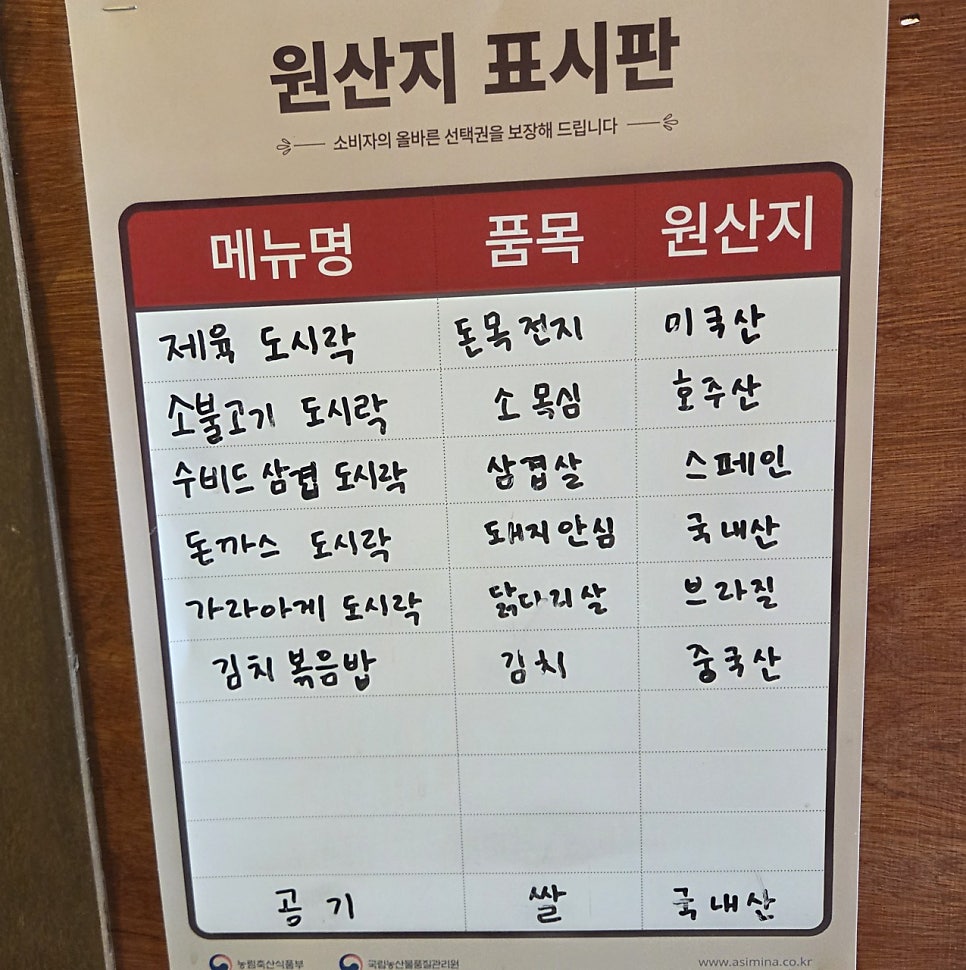 원산지 표시판
소비자의 올바른 선택권을 보장해 드립니다
메뉴명 품목 원산지
제육 도시락 돈목전지 미국산
소불고기 도시락 소 목심 호주산
수비드 삼겹 도시락 삼겹살 스페인
돈까스 도시락 돼지안심 국내산
가라아게 도시락 닭다리살 브라질
김치볶음밥 김치 중국산
공기 쌀 국내산
농림축산식품부 국립농산물품질관리원 www.asimina.co.kr